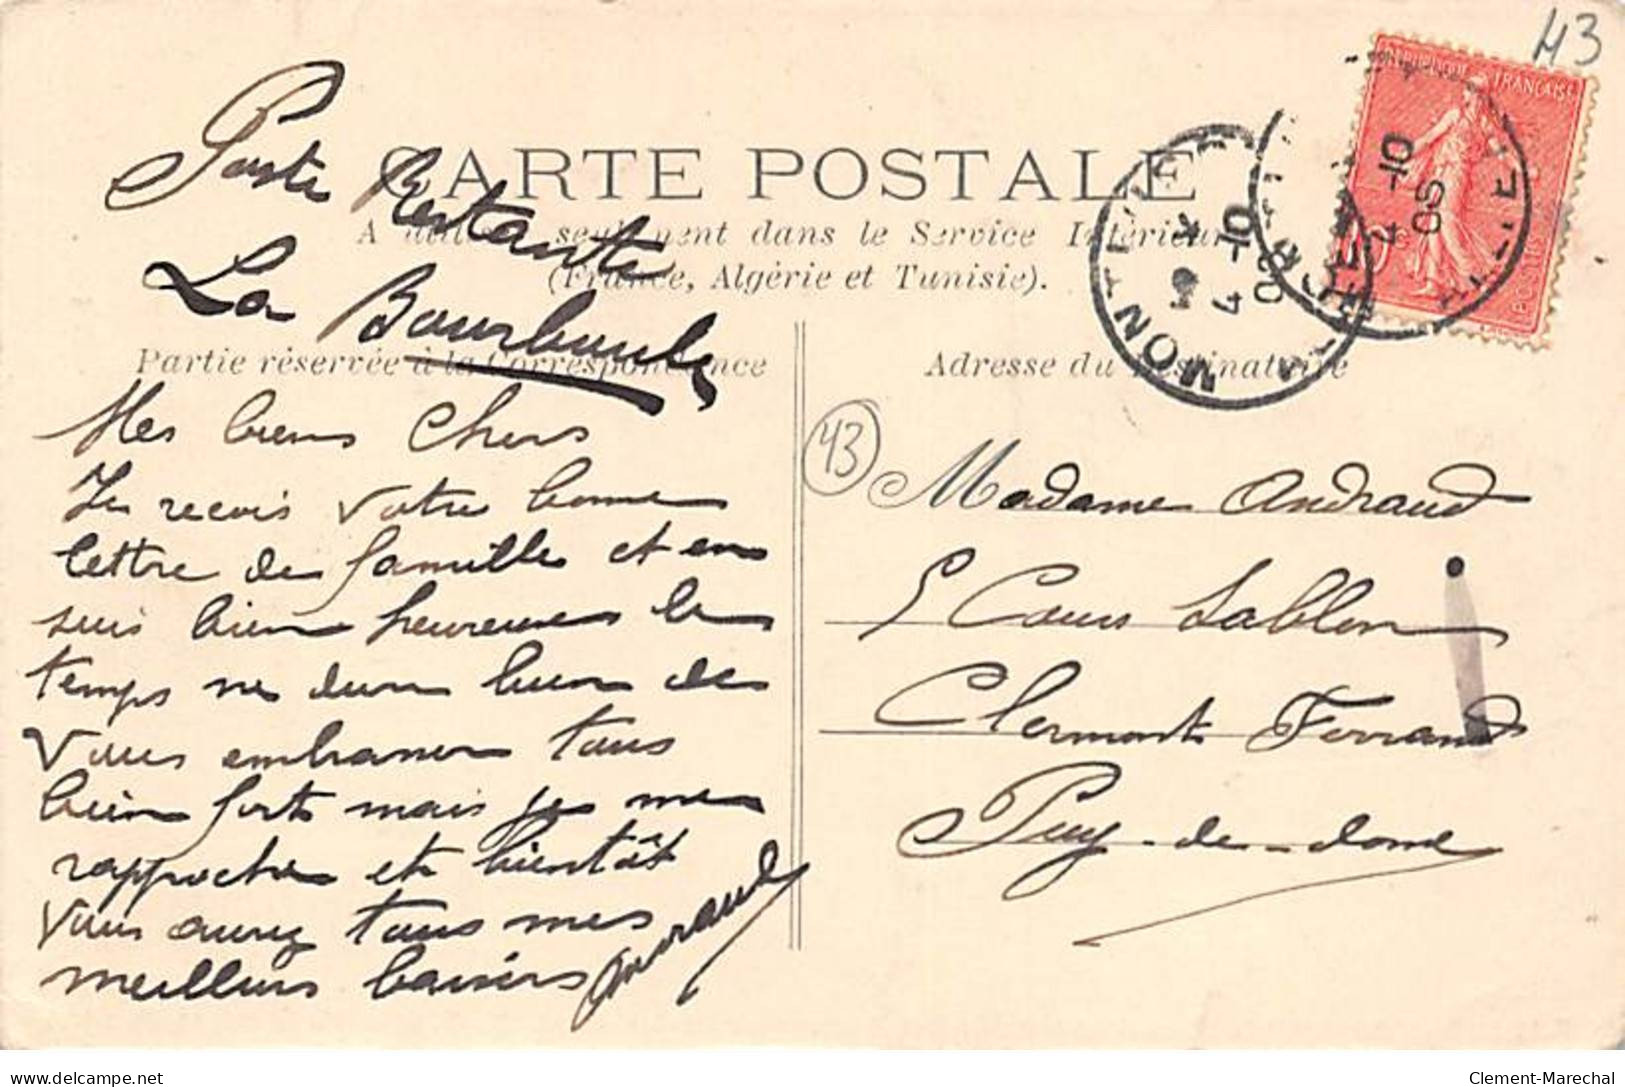 43
Poste Restante
La Bourboule
CARTE POSTALE
A utiliser seulement dans le Service Intérieur
(France, Algérie et Tunisie).
Partie réservée à la Correspondance
Mes biens Chers
Je recois votre bonne
lettre de famille et en
suis bien heureuse le
temps me dure bien de
vous embrasser tous
bien forts mais je me
rapproche et bientôt
vous aurez tous mes
meilleurs baisers
Adresse du Destinataire
43
Madame Andraud
5 Cours Sablon
Clermont Ferrand
Puy-de-dome
REPUBLIQUE FRANÇAISE
POSTES
4-10
05
MONTE
4-10
delcampe.net
Clement-Marechal